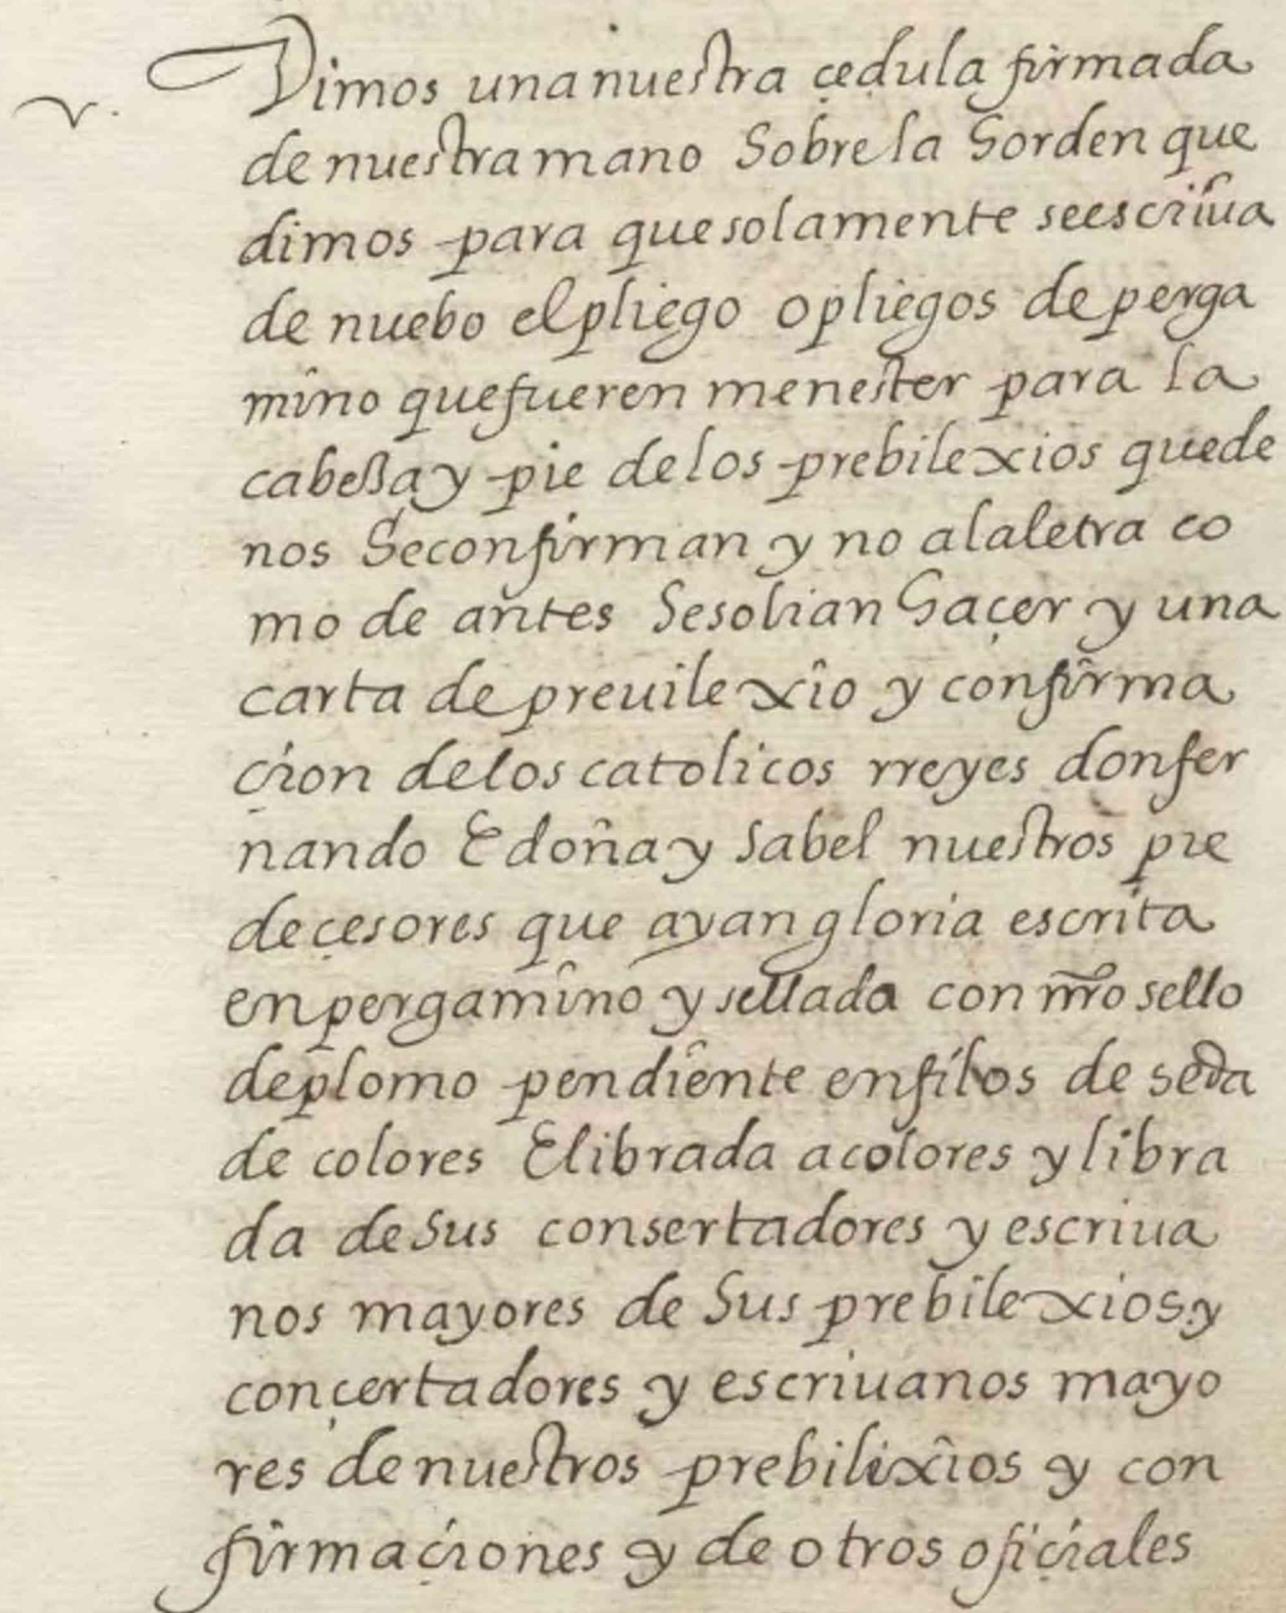 v. Vimos una nuestra çedula firmada
de nuestra mano Sobre la horden que
dimos para que solamente seescriua
de nuebo el pliego o pliegos de perga
mino que fueren menester para la
cabessa y pie de los prebilexios que de
nos Seconfirman y no a la letra co
mo de antes Sesolian haçer y una
carta de preuilexio y confirma
çion de los catolicos rreyes don fer
nando E doña ysabel nuestros pre
deçesores que ayan gloria escrita
en pergamino y sellada con nr̃o sello
de plomo pendiente en filos de seda
de colores E librada a colores y libra
da de Sus consertadores y escriua
nos mayores de Sus prebilexios y
conçertadores y escriuanos mayo
res de nuestros prebilixios y con
firmaçiones y de otros ofiçiales